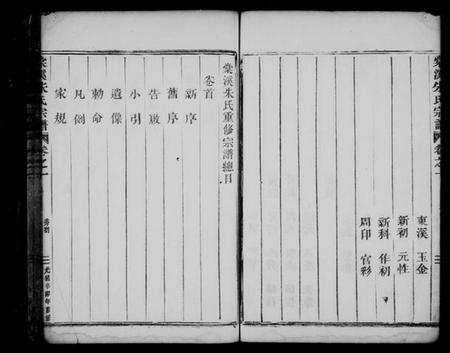 棠溪朱氏宗譜
卷之一
東溪 玉金
新初 元性
新科 作初
周印 官彩
棠溪朱氏重修宗譜總目
卷首
新序
舊序
告戒
小引
遺像
勅命
凡例
家規
棠溪朱氏宗譜
卷之一